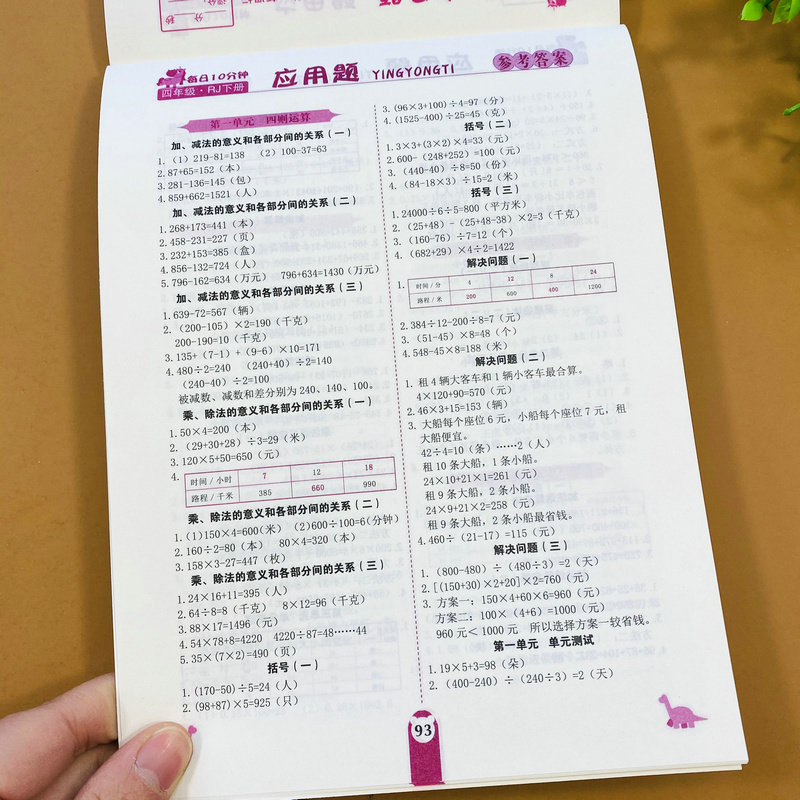 每日10分钟
四年级·RJ下册
应用题 YINGYONGTI
参考答案
第一单元 四则运算
加、减法的意义和各部分间的关系（一）
1.（1）219-81=138 （2）100-37=63
2.87+65=152（本）
3.281-136=145（包）
4.859+662=1521（人）
加、减法的意义和各部分间的关系（二）
1.268+173=441（本）
2.458-231=227（页）
3.232+153=385（盒）
4.856-132=724（人）
5.796-162=634（万元） 796+634=1430（万元）
加、减法的意义和各部分间的关系（三）
1.639-72=567（辆）
2.（200-105）×2=190（千克）
200-190=10（千克）
3.135+（7-1）+（9-6）×10=171
4.480÷2=240 （240+40）÷2=140
（240-40）÷2=100
被减数、减数和差分别为240、140、100。
乘、除法的意义和各部分间的关系（一）
1.50×4=200（本）
2.（29+30+28）÷3=29（米）
3.120×5+50=650（元）
4.
时间/小时 7 12 18
路程/千米 385 660 990
乘、除法的意义和各部分间的关系（二）
1.(1)150×4=600(米) (2)600÷100=6(分钟)
2.160÷2=80（本） 80×4=320（本）
3.158×3-27=447（枚）
乘、除法的意义和各部分间的关系（三）
1.24×16+11=395（人）
2.64÷8=8（千克） 8×12=96（千克）
3.88×17=1496（元）
4.54×78+8=4220 4220÷87=48……44
5.35×(7×2)=490（页）
括号（一）
1.(170-50)÷5=24（人）
2.(98+87)×5=925（只）
3.(96×3+100)÷4=97（分）
4.(1525-400)÷25=45（克）
括号（二）
1.3×3+(3×2)×4=33（元）
2.600-（248+252）=100（元）
3.（440-40）÷8=50（份）
4.（84-18×3）÷15=2（米）
括号（三）
1.24000÷6÷5=800（平方米）
2.（25+48）-（25+48-38）×2=3（千克）
3.（160-76）÷7=12（个）
4.（682+29）×4÷2=1422
解决问题（一）
1.
时间/分 4 12 8 24
路程/米 200 600 400 1200
2.384÷12-200÷8=7（元）
3.（51-45）×8=48（个）
4.548-45×8=188（米）
解决问题（二）
1.租4辆大客车和1辆小客车最合算。
4×120+90=570（元）
2.46×3+15=153（辆）
3.大船每个座位6元，小船每个座位7元，租
大船便宜。
42÷4=10（条）……2（人）
租10条大船，1条小船。
24×10+21×1=261（元）
租9条大船，2条小船。
24×9+21×2=258（元）
租9条大船，2条小船最省钱。
4.460÷（21-17）=115（元）
解决问题（三）
1.（800-480）÷（480÷3）=2（天）
2.[(150+30)×2+20]×2=760（元）
3.方案一：150×4+60×6=960（元）
方案二：100×（4+6）=1000（元）
960元＜1000元 所以选择方案一较省钱。
第一单元 单元测试
1.19×5+3=98（朵）
2.（400-240）÷（240÷3）=2（天）
93